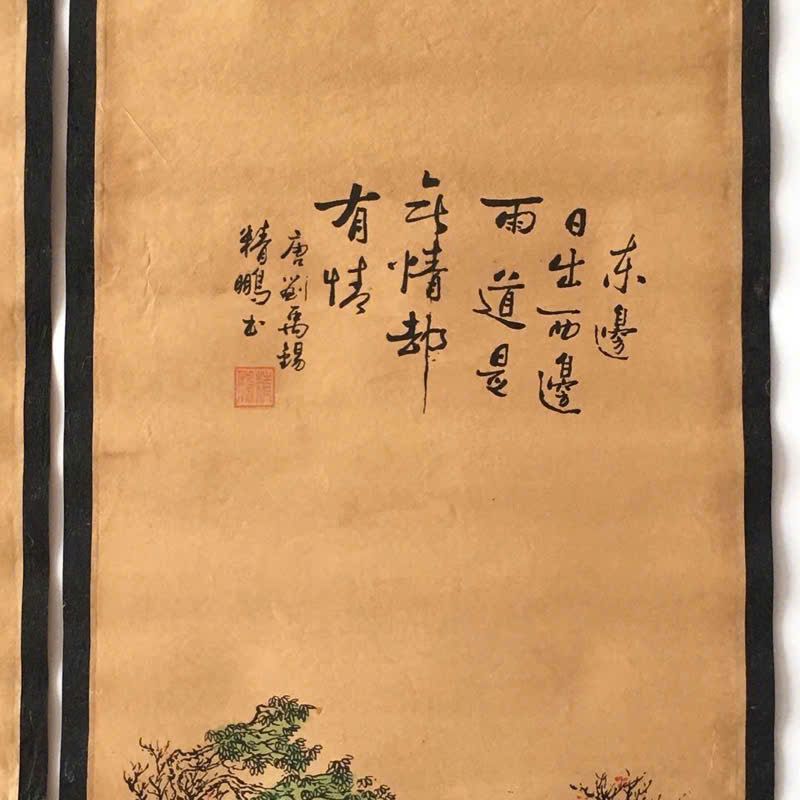 东邊
日出西邊
雨道是
无情却
有情
唐劉禹錫
精鵬书